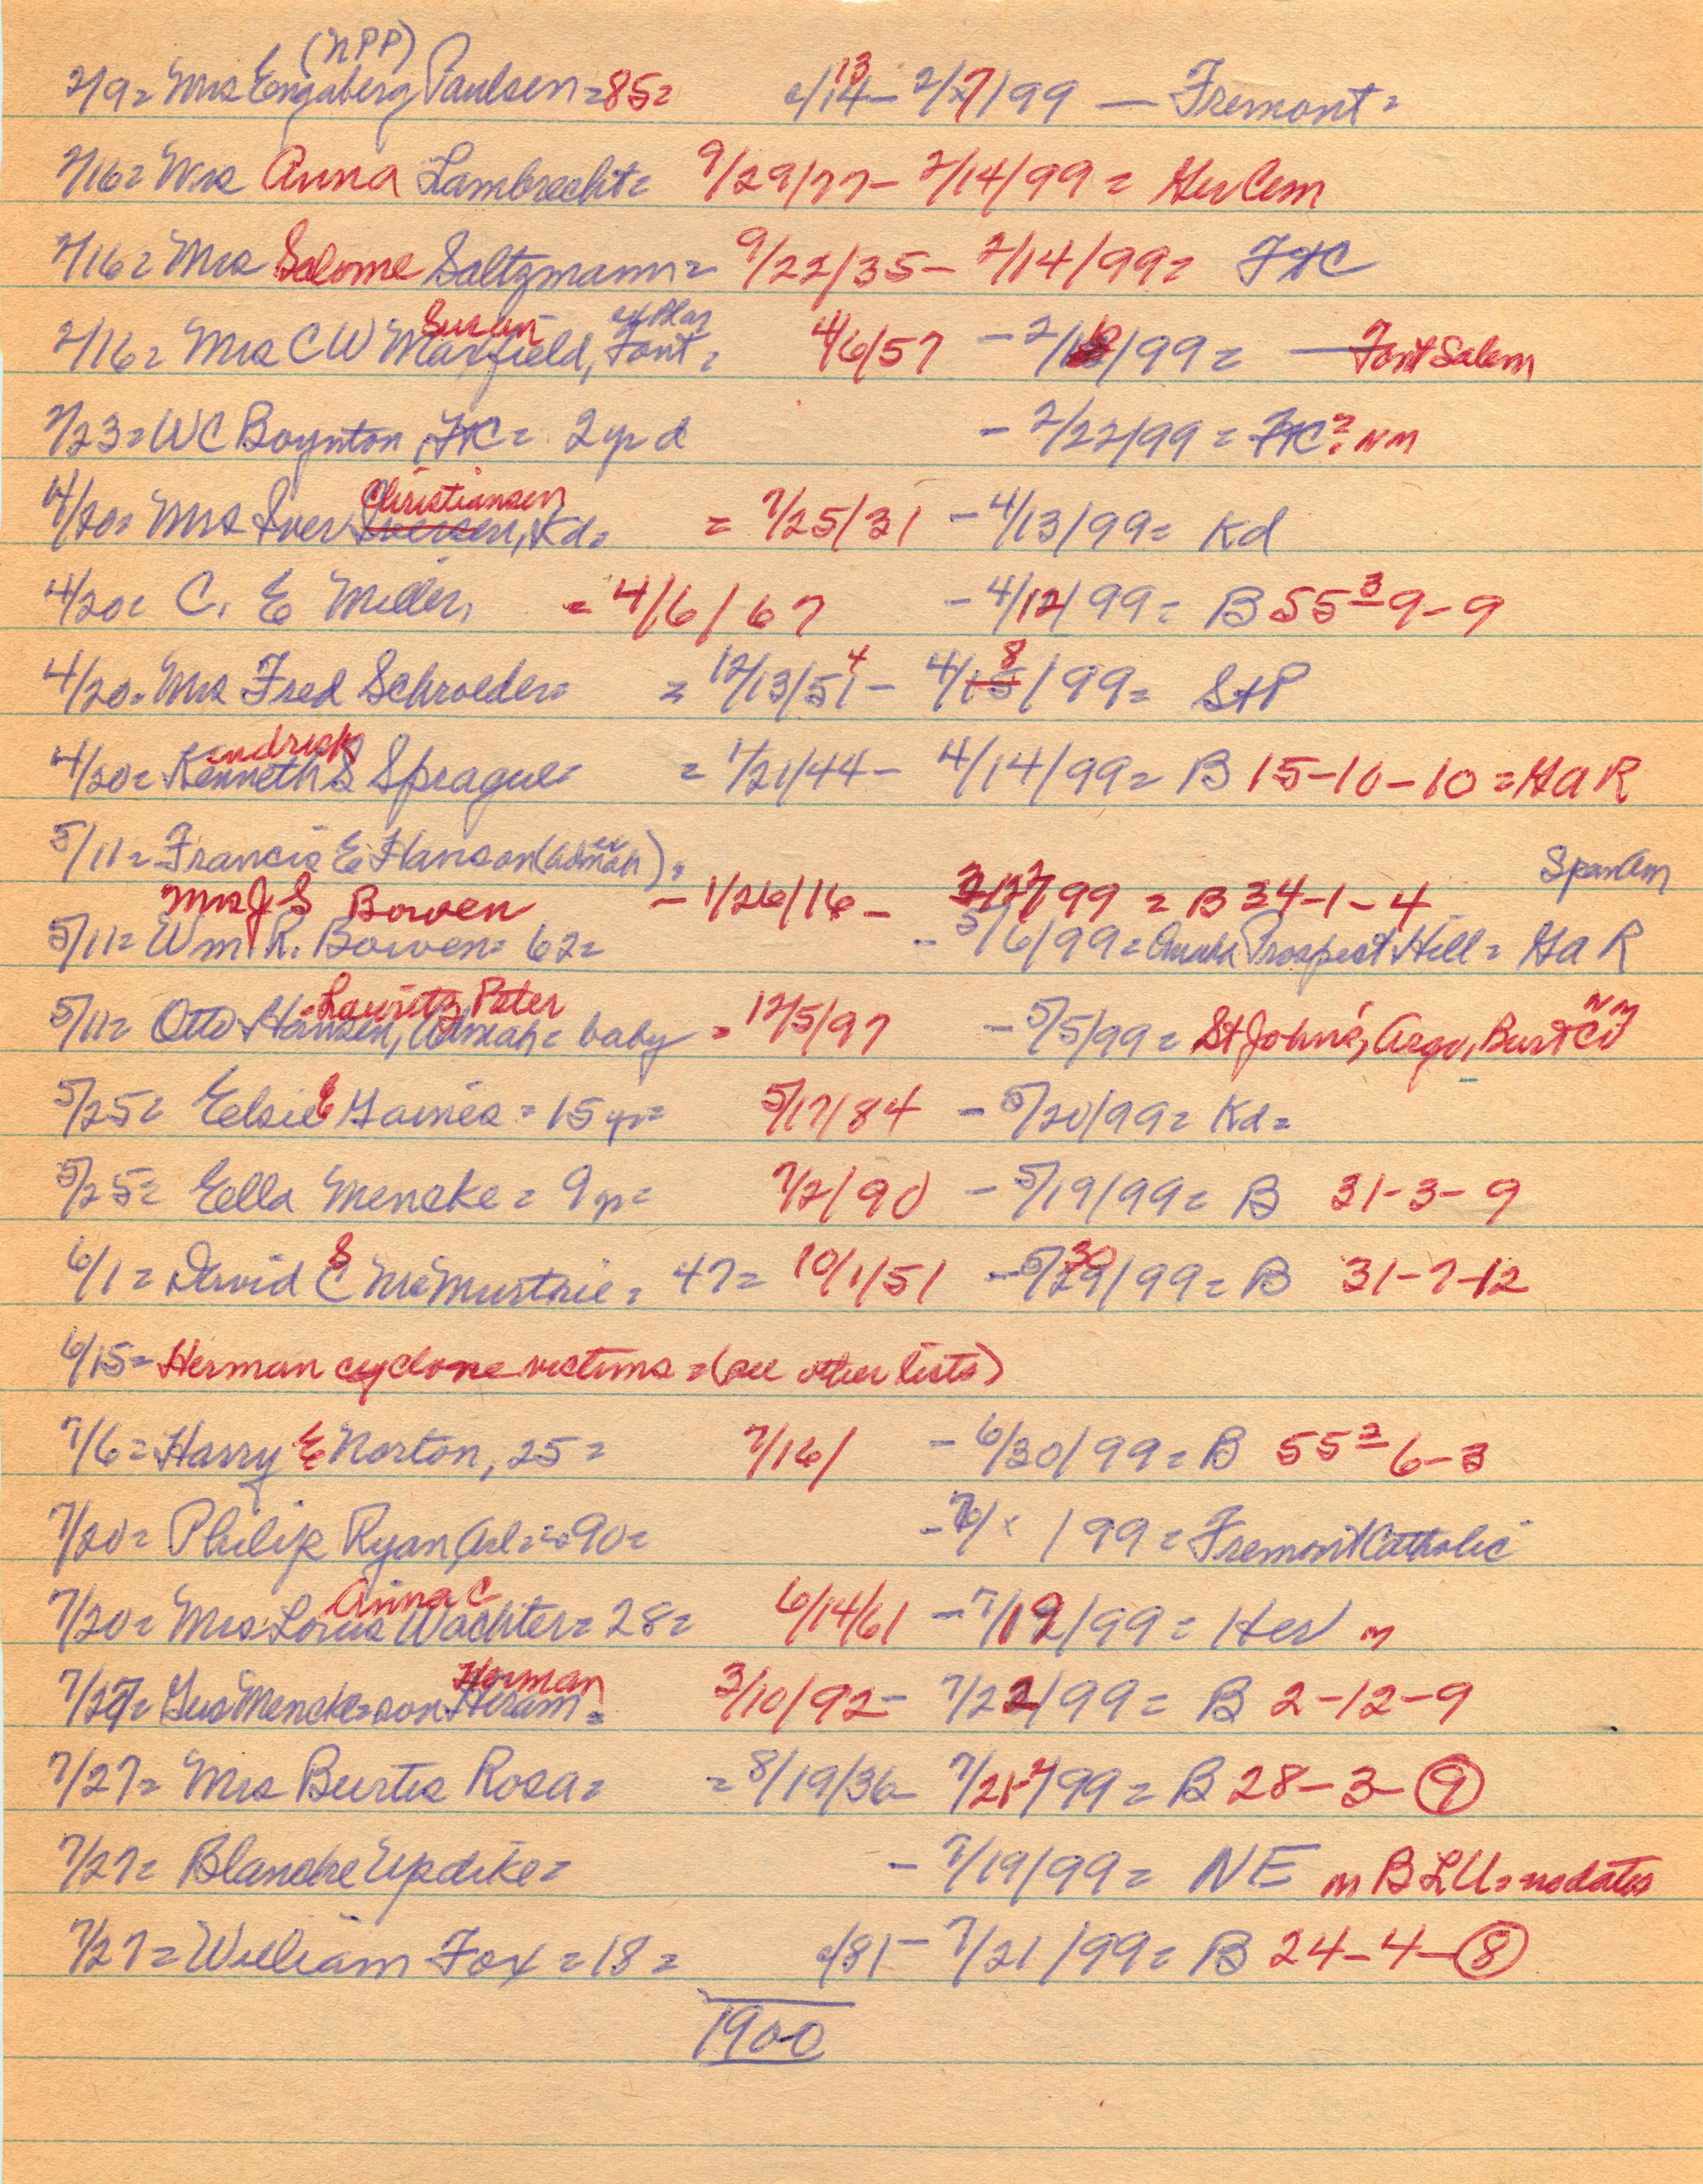 (NPP)
2/9= Mrs Engaberg Paulsen=85= c/14 13 - 2/7/99 — Fremont=
2/16= Mrs Anna Lambrecht= 9/29/77- 2/14/99= Her Cem
2/16= Mrs Salome Saltzmann= 9/22/35- 2/14/99= FtC
Susan
2/16= Mrs C W Maxfield, Font= 4/6/57 - 2/ /99= — Font Salem
2/23= W C Boynton, FtC= 2 yr d - 2/22/99= FtC? nm
Christiansen
4/20= Mrs Iver Iversen, Kd= = 7/25/31 - 4/13/99= Kd
4/20= C. E Miller, = 4/6/67 - 4/12/99= B 55 3-9-9
4/20= Mrs Fred Schroeder= = 12/13/51 4 - 4/15 8/99= StP
endrick
4/20= Kenneth S Sprague= = 1/21/44- 4/14/99= B 15-10-10=GaR
5/11= Francis E Hanson (Admah)= Span Am
Mrs J S Bowen - 1/26/16- /99 = B 34-1-4
5/11= Wm R. Bowen= 62= - 5/6/99= Omaha Prospect Hill= GaR
Lauritz Peter nm
5/11= Otto Hansen, Admah= baby = 12/5/97 - 5/5/99= St John's, Argo, Burt Co
5/25= Eelsie E Gaines= 15 yr= 5/17/84 - 5/20/99= Kd=
5/25= Eella Mencke= 9 yr= 7/2/90 - 5/19/99= B 31-3-9
S 30
6/1= David C McMurtrie= 47= 10/1/51 - 5/29/99= B 31-7-12
6/15= Herman cyclone victims=(see other lists)
7/6= Harry E Norton, 25= 7/16/ - 6/30/99= B 55 2-6-3
7/20= Philip Ryan, Arl= 90= - 7/x /99= Fremont Catholic
Anna C
7/20= Mrs Louis Wachter= 28= 6/14/61 - 7/19/99= Her m
Herman
7/27= Gus Mencke=son Hiram= 3/10/92- 7/22/99= B 2-12-9
7/27= Mrs Burtis Rosa= = 8/19/36- 7/21-2/99= B 28-3-9
7/27= Blanche Updike= - 7/19/99= NE m BLU=no dates
7/27= William Fox=18= c/81- 7/21/99= B 24-4-8
1900